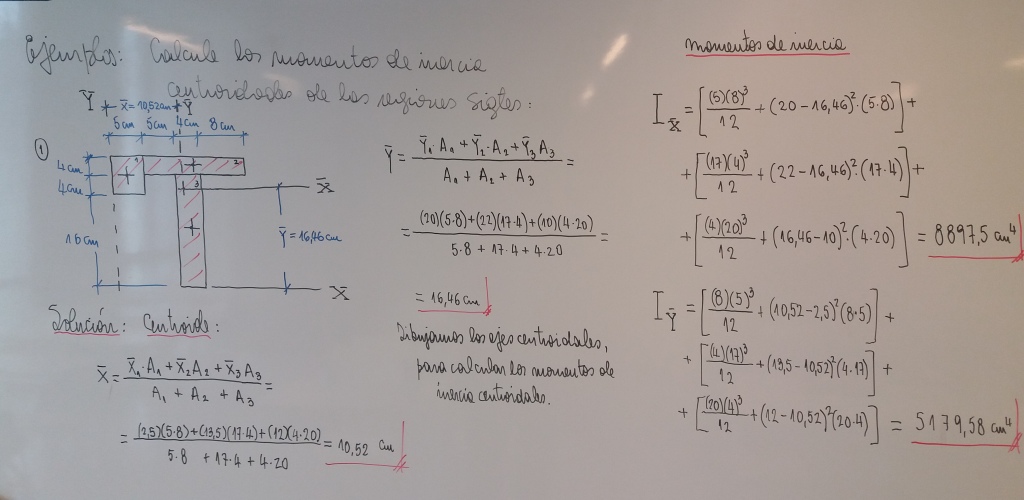 Ejemplo: Calcule los momentos de inercia
centroidales de las regiones sigtes:
Ȳ x̄ = 10,52cm Ȳ
5cm 5cm 4cm 8cm
①
1 2
4cm
4cm
3
X̄
16cm
ȳ = 16,46cm
X̄
Solución: Centroide:
X̄ = (X̄₁·A₁ + X̄₂A₂ + X̄₃A₃) / (A₁ + A₂ + A₃) =
= ((2,5)(5·8)+(13,5)(17·4)+(12)(4·20)) / (5·8 + 17·4 + 4·20) = 10,52 cm
Ȳ = (Ȳ₁·A₁ + Ȳ₂·A₂ + Ȳ₃A₃) / (A₁ + A₂ + A₃) =
= ((20)(5·8)+(22)(17·4)+(10)(4·20)) / (5·8 + 17·4 + 4·20) =
= 16,46 cm
Dibujamos los ejes centroidales,
para calcular los momentos de
inercia centroidales.
momentos de inercia
I_X̄ = [(5)(8)³/12 + (20-16,46)²·(5·8)] +
+ [(17)(4)³/12 + (22-16,46)²(17·4)] +
+ [(4)(20)³/12 + (16,46-10)²·(4·20)] = 8897,5 cm⁴
I_Ȳ = [(8)(5)³/12 + (10,52-2,5)²(8·5)] +
+ [(4)(17)³/12 + (13,5-10,52)²(4·17)] +
+ [(20)(4)³/12 + (12-10,52)²(20·4)] = 5179,58 cm⁴